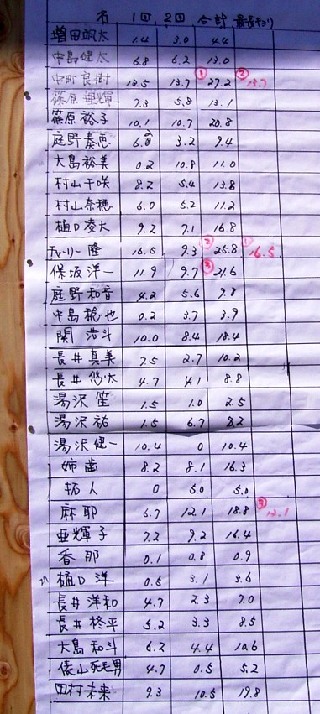 名 1回 2回 合計
増田颯太 1.4 3.0 4.4
中島健太 6.8 6.2 13.0
中町良樹 13.5 13.7 ① 27.2 ② 13.7
篠原 7.3 5.8 13.1
篠原裕子 10.1 10.7 20.8
庭野 3.2 9.4
大島裕美 0.2 10.8 11.0
村山千咲 8.2 5.4 13.8
村山奈穂 6.0 5.2 11.2
樋口 9.7 7.1 16.8
隆 16.5 9.3 ② 25.8 ① 16.5
保坂洋一 11.9 9.7 ③ 21.6
庭野和音 4.2 5.6 9.8
中島 也 0.2 3.7 3.9
関 浩斗 10.0 8.4 18.4
長井真美 7.5 2.7 10.2
長井悠太 4.7 4.1 8.8
湯沢笛 1.5 1.0 2.5
湯沢祐 1.5 6.7 8.2
湯沢健一 10.4 0 10.4
姉歯 8.2 8.1 16.3
拓人 0 5.0 5.0
麻耶 12.1 18.8 ③ 12.1
亜輝子 7.2 9.2 16.4
香那 0.1 0.8 0.9
樋口洋 0.5 3.1 3.6
長井洋和 4.7 2.3 7.0
長井柊平 5.2 3.3 8.5
大島和斗 6.2 4.4 10.6
男 4.7 0.5 5.2
田村未来 9.3 10.5 19.8